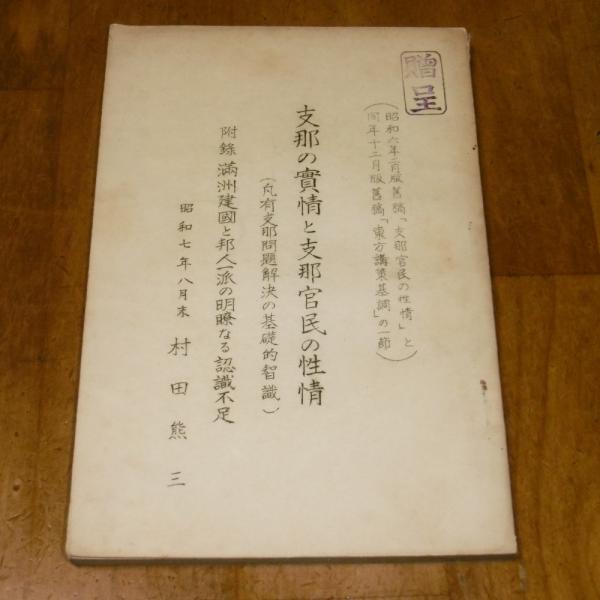 贈呈
(昭和六年二月版舊稿「支那官民の性情」と
同年十二月版舊稿「東方講策基調」の一節)
支那の實情と支那官民の性情
(凡有支那問題解決の基礎的智識)
附錄 滿洲建國と邦人一派の明瞭なる認識不足
昭和七年八月末 村田熊三